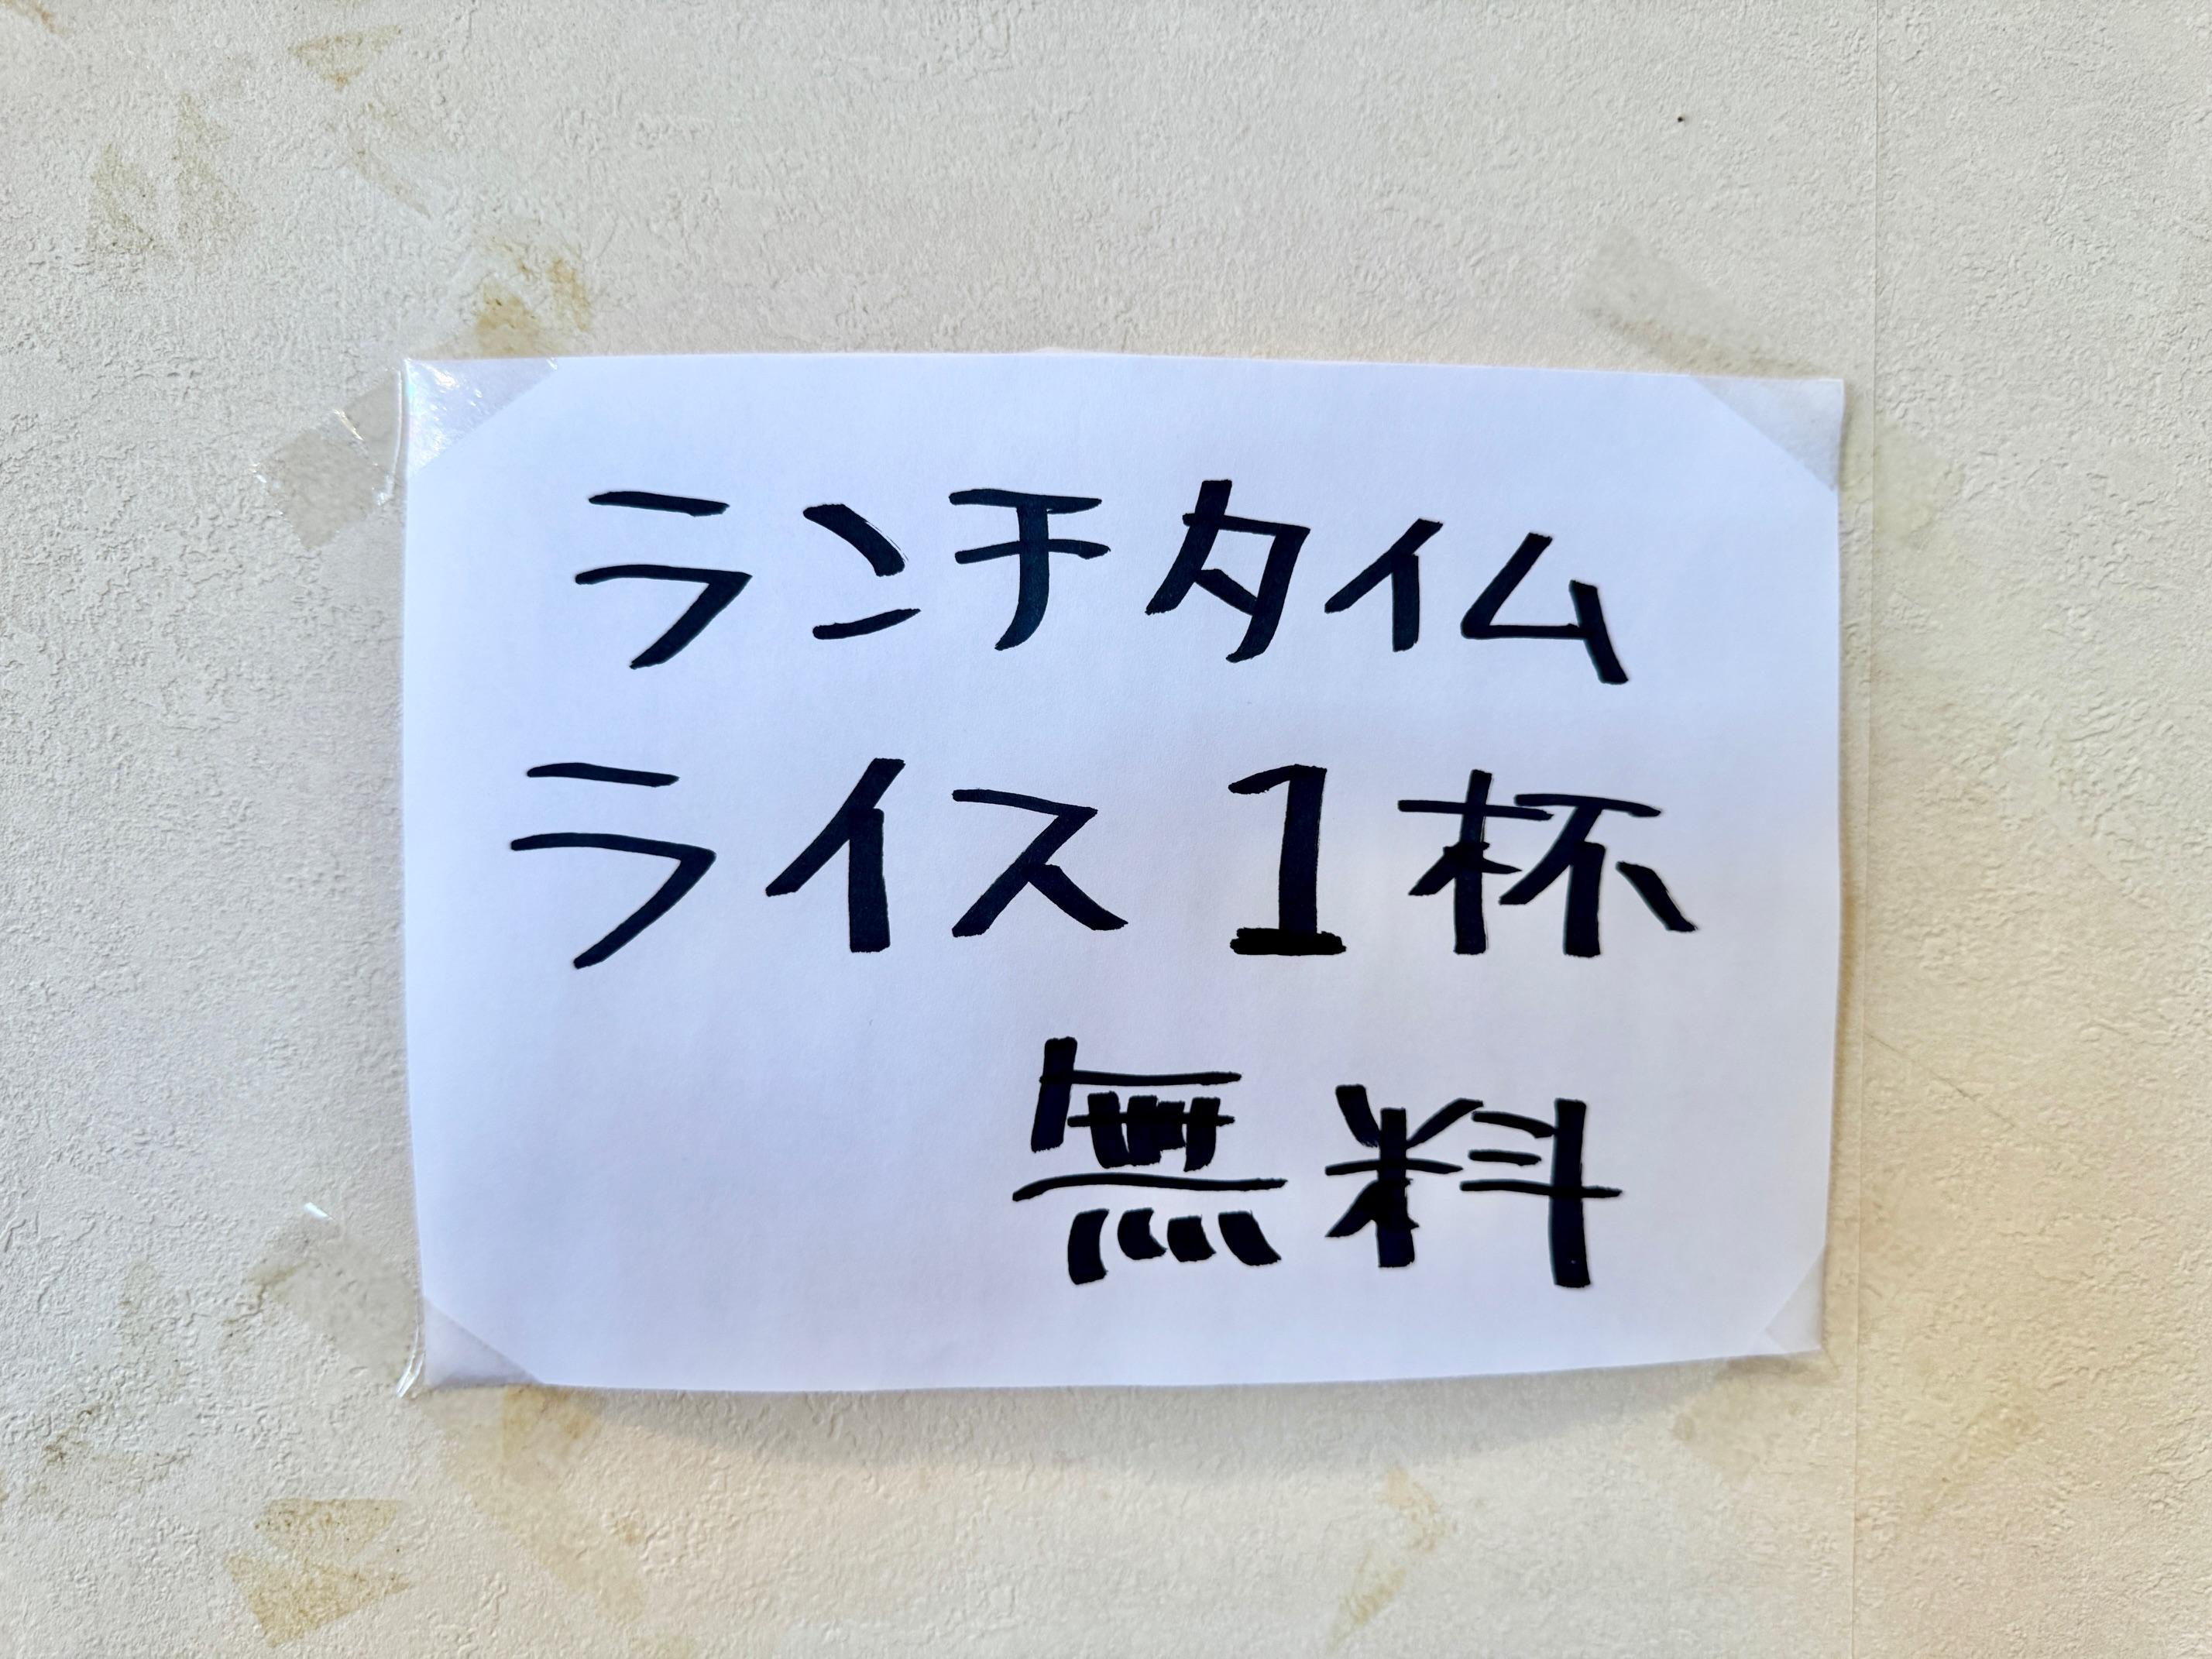 ランチタイム
ライス1杯
無料